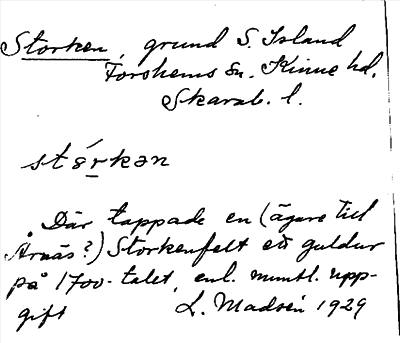 Storken, grund S. Island
Forshems sn. Kinne hd.
Skarab. l.
stórkən
Där tappade en (ägare till
Årnäs?) Storkenfelt ett guldur
på 1700-talet, enl. muntl. upp-
gift L. Madsén 1929